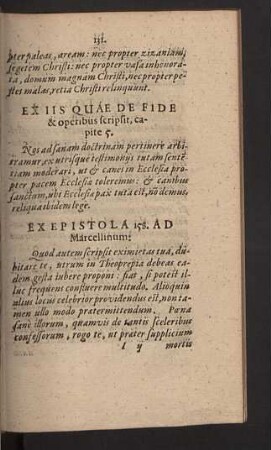 iij.
pter paleas, aream: nec propter zizaniam,
segetem Christi: nec propter vasa inhonora-
ta, domum magnam Christi, nec propter pe-
stes malas, retia Christi relinquunt.
EX IIS QUÆ DE FIDE
& operibus scripsit, ca-
pite 5.
Nos ad sanam doctrinam pertinere arbi-
tramur, ex utrisque testimonijs tutam sente-
tiam moderari, ut & canes in Ecclesia pro-
pter pacem Ecclesiæ toleremus: & canibus
sanctum, ubi Ecclesiæ pax tuta est, nō demus,
reliqua ibidem lege.
EX EPISTOLA 158. AD
Marcellinum:
Quod autem scripsit eximietas tua, du-
bitare te, utrum in Theoprepia debeas ea-
dem gesta iubere proponi: fiat, si potest il-
luc frequens confluere multitudo. Alioquin
alius locus celebrior providendus est, non ta-
men ullo modo prætermittendum. Pœna
sanè illorum, quamvis de tantis sceleribus
confessorum, rogo te, ut præter supplicium
l ij mortis